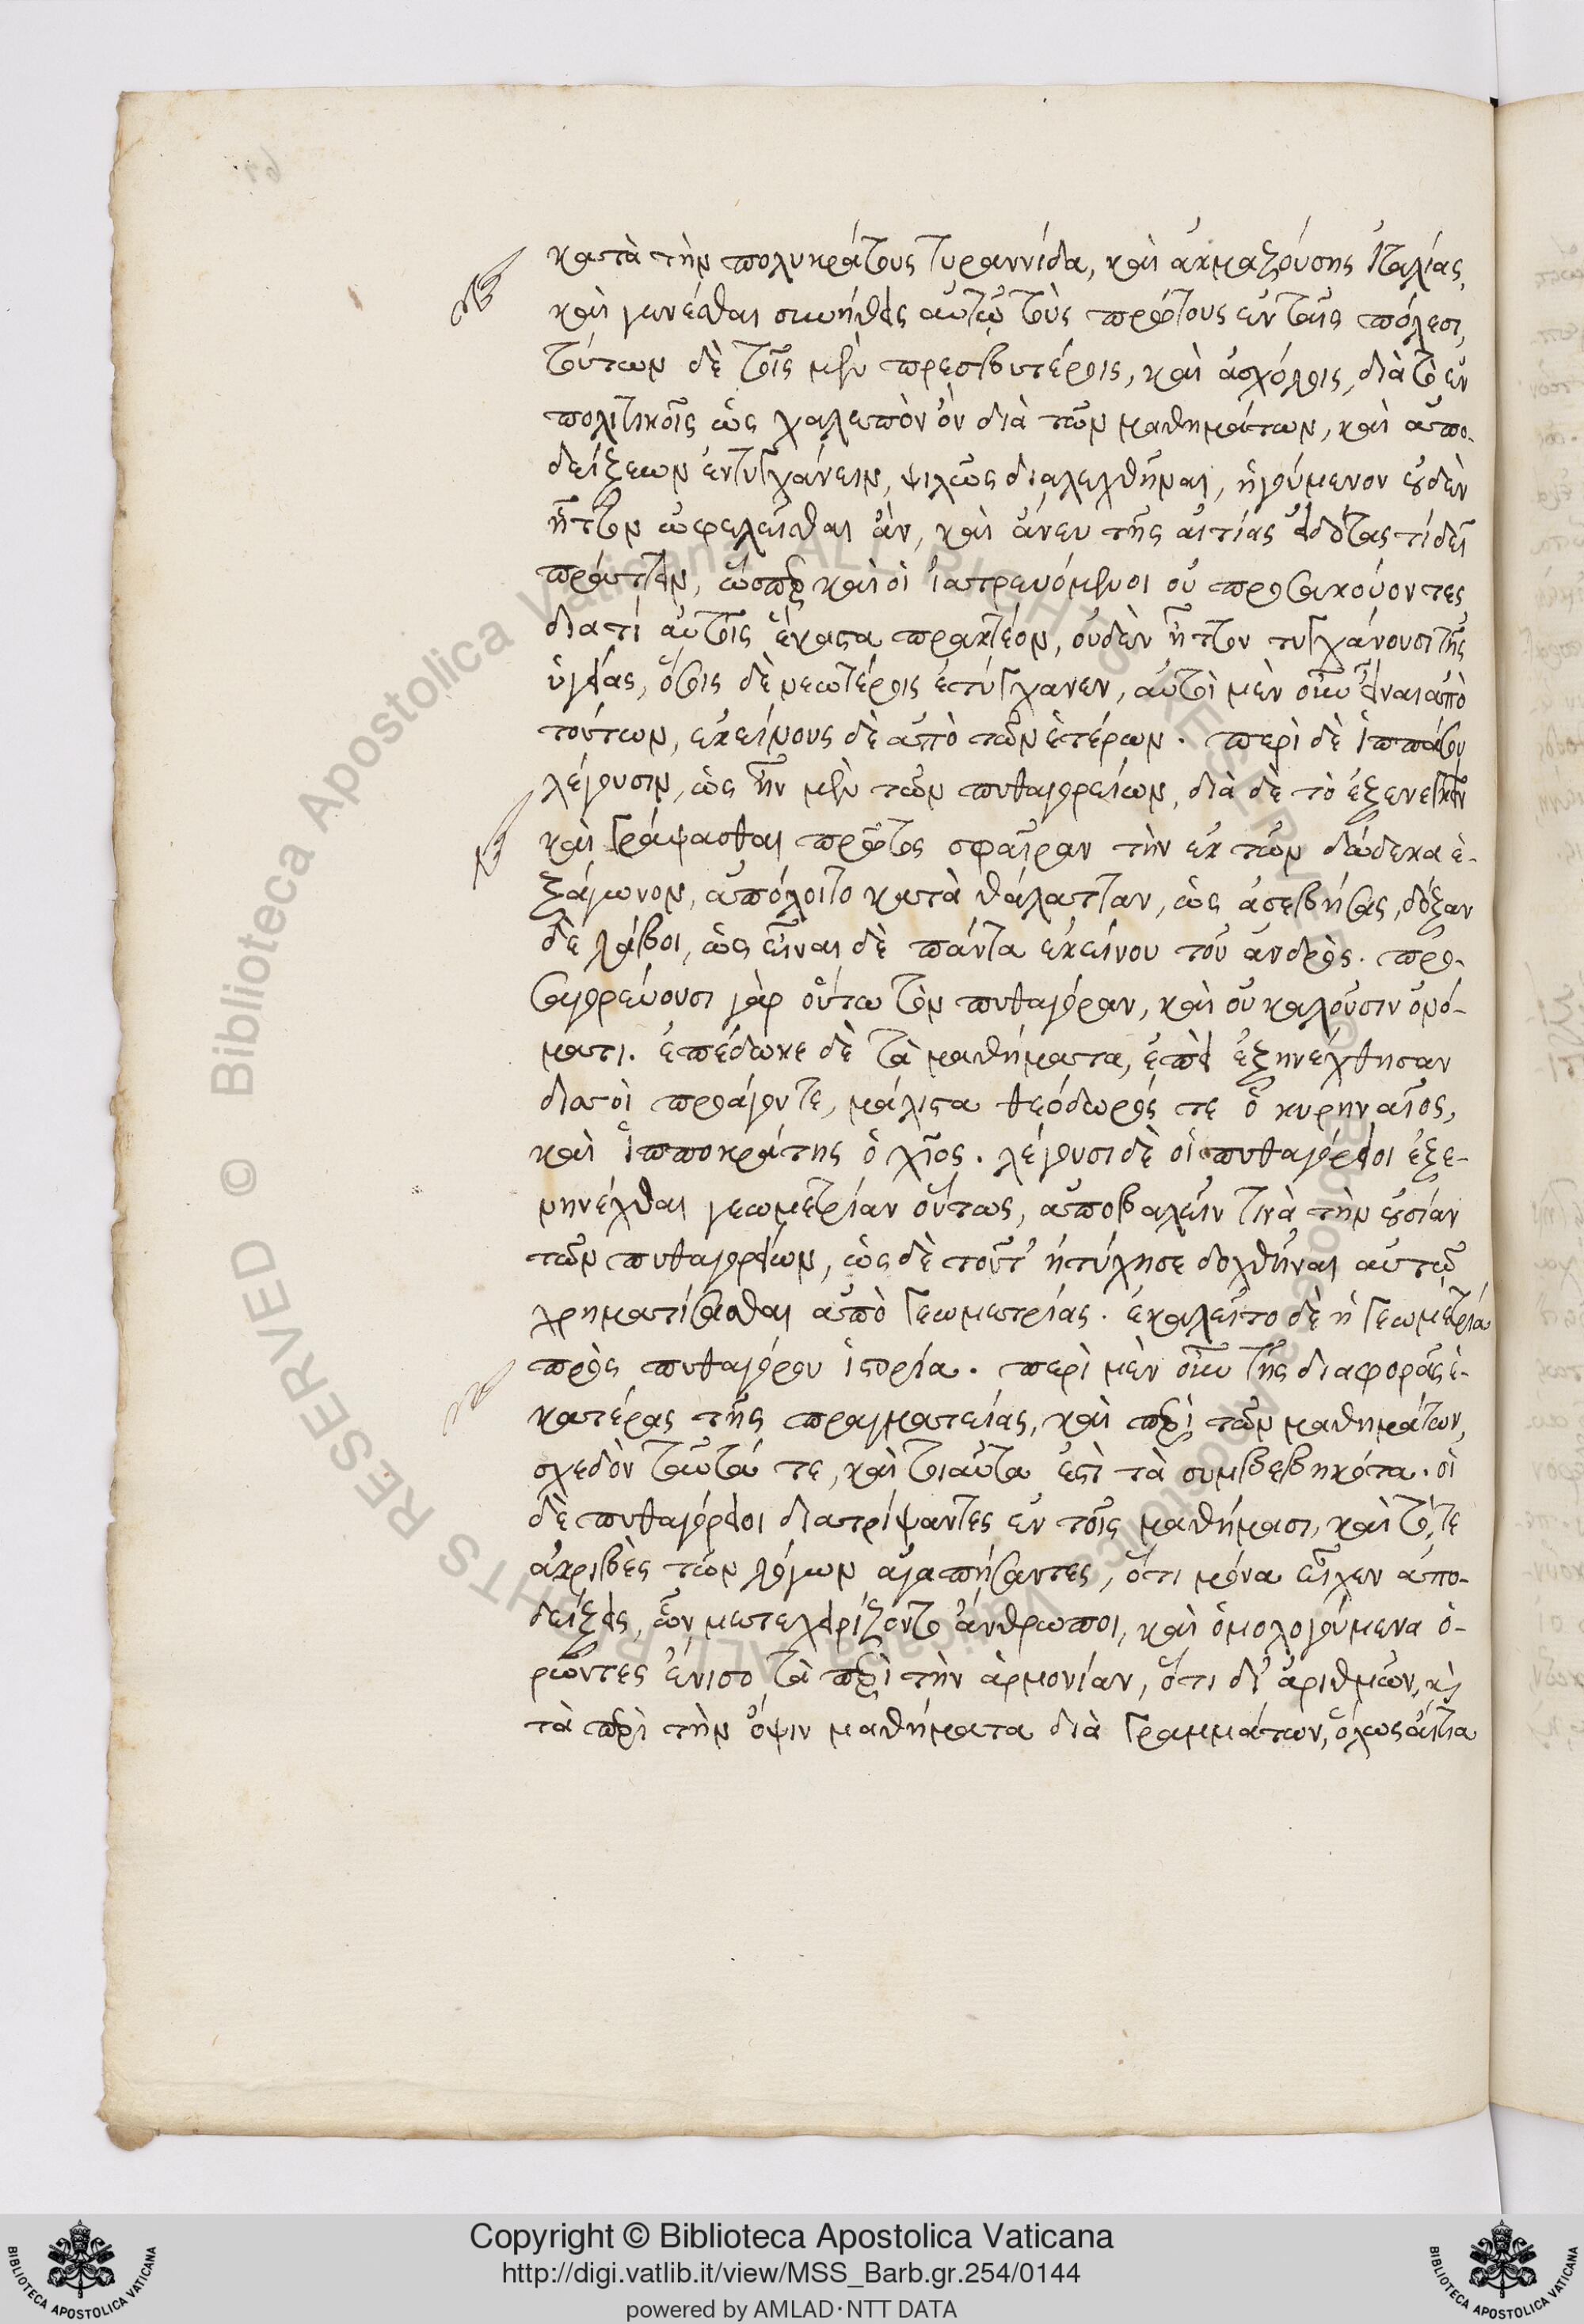 κατὰ τὴν πολυκράτους τυραννίδα, καὶ ἀκμαζούσης ἰταλίας,
καὶ γενέσθαι συνήθεις αὐτῷ τοὺς πρώτους ἐν ταῖς πόλεσι,
τούτων δὲ τοῖς μὲν πρεσβυτέροις, καὶ ἀσχόλοις, διὰ τὸ ἐν
πολιτικοῖς ὡς χαλεπὸν ὂν διὰ τῶν μαθημάτων, καὶ ἀπο-
δείξεων ἐντυγχάνειν, ψιλῶς διαλεχθῆναι, ἡγούμενον οὐδὲν
ἧττον ὠφελεῖσθαι ἂν, καὶ ἄνευ τῆς αἰτίας εἰδότας τί δεῖ
πράττειν, ὥσπερ καὶ οἱ ἰατρευόμενοι οὐ προσακούοντες
διατί αὐτοῖς ἕκαστα πρακτέον, οὐδὲν ἧττον τυγχάνουσι τῆς
ὑγείας, ὅσοις δὲ νεωτέροις ἐτύγχανεν, αὐτοὶ μὲν οὖν εἶναι ἀπὸ
τούτων, ἐκείνους δὲ ἀπὸ τῶν ἑτέρων. περὶ δὲ ἱππάσου
λέγουσιν, ὡς ἦν μὲν τῶν πυθαγορείων, διὰ δὲ τὸ ἐξενεγκεῖν
καὶ γράψασθαι πρῶτος σφαῖραν τὴν ἐκ τῶν δώδεκα ἑ-
ξάγωνον, ἀπόλοιτο κατὰ θάλατταν, ὡς ἀσεβήσας, δόξαν
δὲ λάβοι, ὡς εἶναι δὲ πάντα ἐκείνου τοῦ ἀνδρὸς. προ-
σαγορεύουσι γὰρ οὕτω τὸν πυθαγόραν, καὶ οὐ καλοῦσιν ὀνό-
ματι. ἐπέδωκε δὲ τὰ μαθήματα, ἐπεὶ ἐξηνέχθησαν
διατοὶ προάγοντε, μάλιστα θεόδωρός τε ὁ κυρηναῖος,
καὶ ἱπποκράτης ὁ χῖος. λέγουσι δὲ οἱ πυθαγόρειοι ἐξε-
νηνέχθαι γεωμετρίαν οὕτως, ἀποβαλεῖν τινὰ τὴν οὐσίαν
τῶν πυθαγορείων, ὡς δὲ τοῦτ' ἠτύχησε δοχθῆναι αὐτῷ
χρηματίσασθαι ἀπὸ γεωμετρίας. ἐκαλεῖτο δὲ ἡ γεωμετρία
πρὸς πυθαγόρου ἱστορία. περὶ μὲν οὖν τῆς διαφορᾶς ἑ-
κατέρας τῆς πραγματείας, καὶ περὶ τῶν μαθημάτων,
σχεδὸν ταῦτά τε, καὶ τοιαῦτα ἐστὶ τὰ συμβεβηκότα. οἱ
δὲ πυθαγόρειοι διατρίψαντες ἐν τοῖς μαθήμασι, καὶ τό, τε
ἀκριβὲς τῶν λόγων ἀγαπήσαντες, ὅτι μόνα εἶχεν ἀπο-
δείξεις, ὧν μετεχειρίζοντο ἄνθρωποι, καὶ ὁμολογούμενα ὁ-
ρῶντες ἔνισο τὰ περὶ τὴν ἁρμονίαν, ὅτι δι' ἀριθμῶν, κὶ
τὰ περὶ τὴν ὄψιν μαθήματα διὰ γραμμάτων, ὅλως αἴτια
Copyright © Biblioteca Apostolica Vaticana
http://digi.vatlib.it/view/MSS_Barb.gr.254/0144
powered by AMLAD·NTT DATA